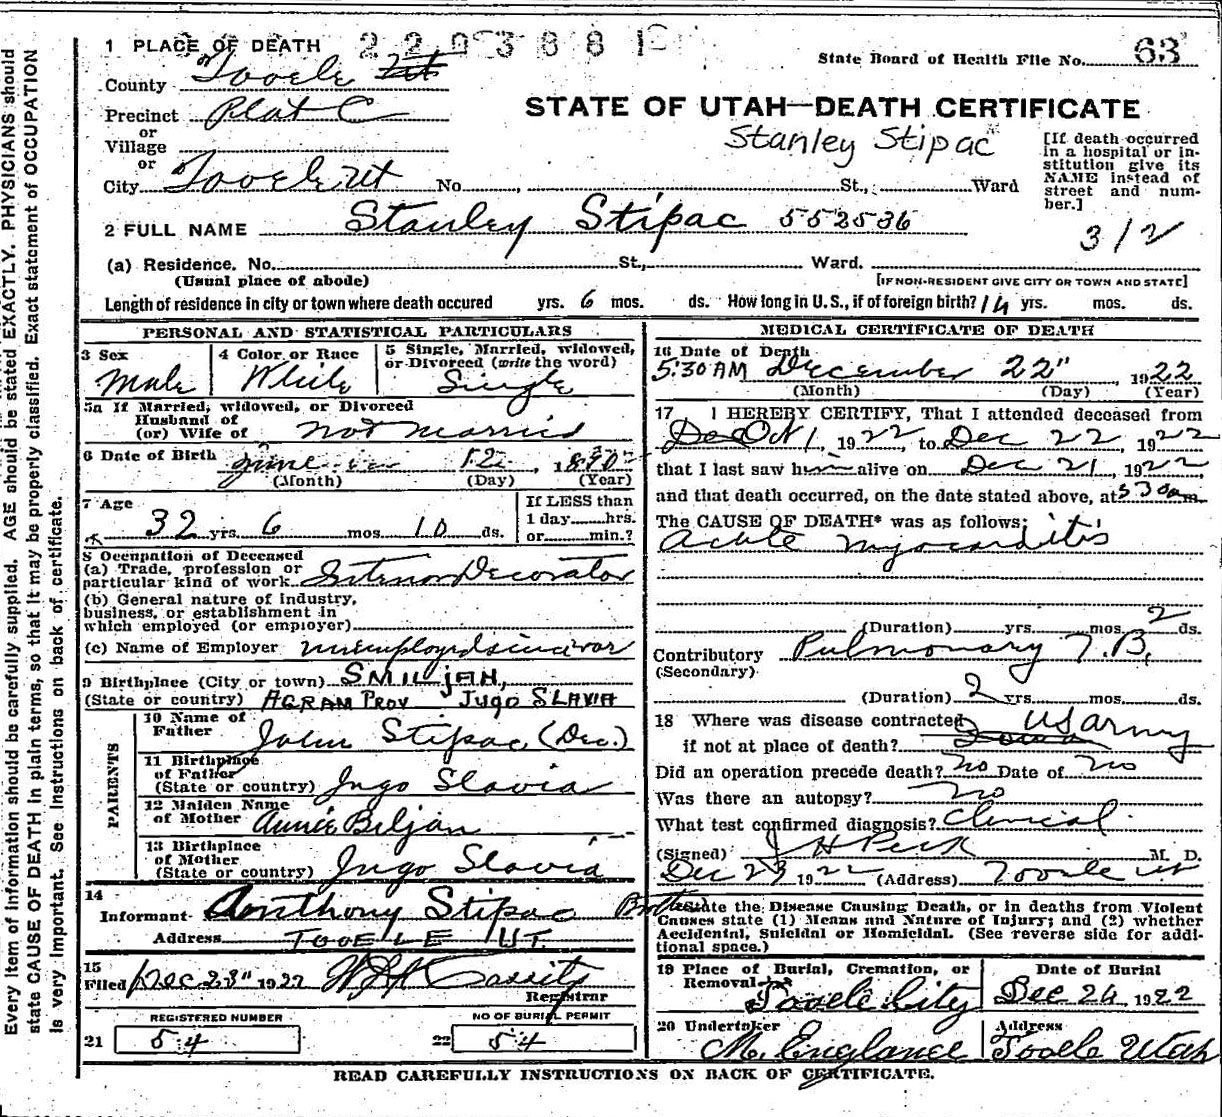 1 PLACE OF DEATH 2203881
State Board of Health File No. 63
County Tooele
STATE OF UTAH—DEATH CERTIFICATE
Precinct Plat C
or
Village
or
Stanley Stipac
City Tooele Ut No. , St., Ward
[If death occurred in a hospital or institution give its NAME instead of street and number.]
2 FULL NAME Stanley Stipac 552536
312
(a) Residence. No. St., Ward.
(Usual place of abode) [IF NON-RESIDENT GIVE CITY OR TOWN AND STATE]
Length of residence in city or town where death occured yrs. 6 mos. ds. How long in U. S., if of foreign birth? 14 yrs. mos. ds.
PERSONAL AND STATISTICAL PARTICULARS
3 Sex 4 Color or Race 5 Single, Married, widowed,
or Divorced (write the word)
Male White Single
5a If Married, widowed, or Divorced
Husband of
(or) Wife of not married
6 Date of Birth June 12, 1890
(Month) (Day) (Year)
7 Age If LESS than
32 yrs. 6 mos. 10 ds. 1 day hrs.
or min.?
8 Occupation of Deceased
(a) Trade, profession or
particular kind of work Interior Decorator
(b) General nature of industry,
business, or establishment in
which employed (or employer)
(c) Name of Employer unemployed since war
9 Birthplace (City or town) SMILJAN,
(State or country) AGRAM PROV JUGO SLAVIA
PARENTS
10 Name of
Father John Stipac (Dec.)
11 Birthplace
of Father
(State or country) Jugo Slavia
12 Maiden Name
of Mother Annie Biljan
13 Birthplace
of Mother
(State or country) Jugo Slavia
14
Informant Anthony Stipac Brother
Address TOOELE UT.
15
Filed Dec 23" 1922
Registrar
REGISTERED NUMBER NO OF BURIAL PERMIT
21 54 22 54
MEDICAL CERTIFICATE OF DEATH
16 Date of Death
5:30 AM December 22", 1922
(Month) (Day) (Year)
17 I HEREBY CERTIFY, That I attended deceased from
Dec Oct 1, 1922 to Dec 22, 1922
that I last saw him alive on Dec 21, 1922
and that death occurred, on the date stated above, at 530am
The CAUSE OF DEATH* was as follows:
acute myocarditis
(Duration) yrs. mos. 2 ds.
Contributory Pulmonary T.B.
(Secondary)
(Duration) 2 yrs. mos. ds.
18 Where was disease contracted US army
if not at place of death?
Did an operation precede death? no Date of no
Was there an autopsy? no
What test confirmed diagnosis? Clinical
(Signed) J H Peck M. D.
Dec 23 1922 (Address) Tooele Ut
*State the Disease Causing Death, or in deaths from Violent
Causes state (1) Means and Nature of Injury; and (2) whether
Accidental, Suicidal or Homicidal. (See reverse side for additional space.)
19 Place of Burial, Cremation, or Date of Burial
Removal
Tooele City Dec 24, 1922
20 Undertaker Address
M. Englance Tooele Utah
READ CAREFULLY INSTRUCTIONS ON BACK OF CERTIFICATE.
Every item of information should be carefully supplied. AGE should be stated EXACTLY. PHYSICIANS should
state CAUSE OF DEATH in plain terms, so that it may be properly classified. Exact statement of OCCUPATION
is very important. See Instructions on back of certificate.